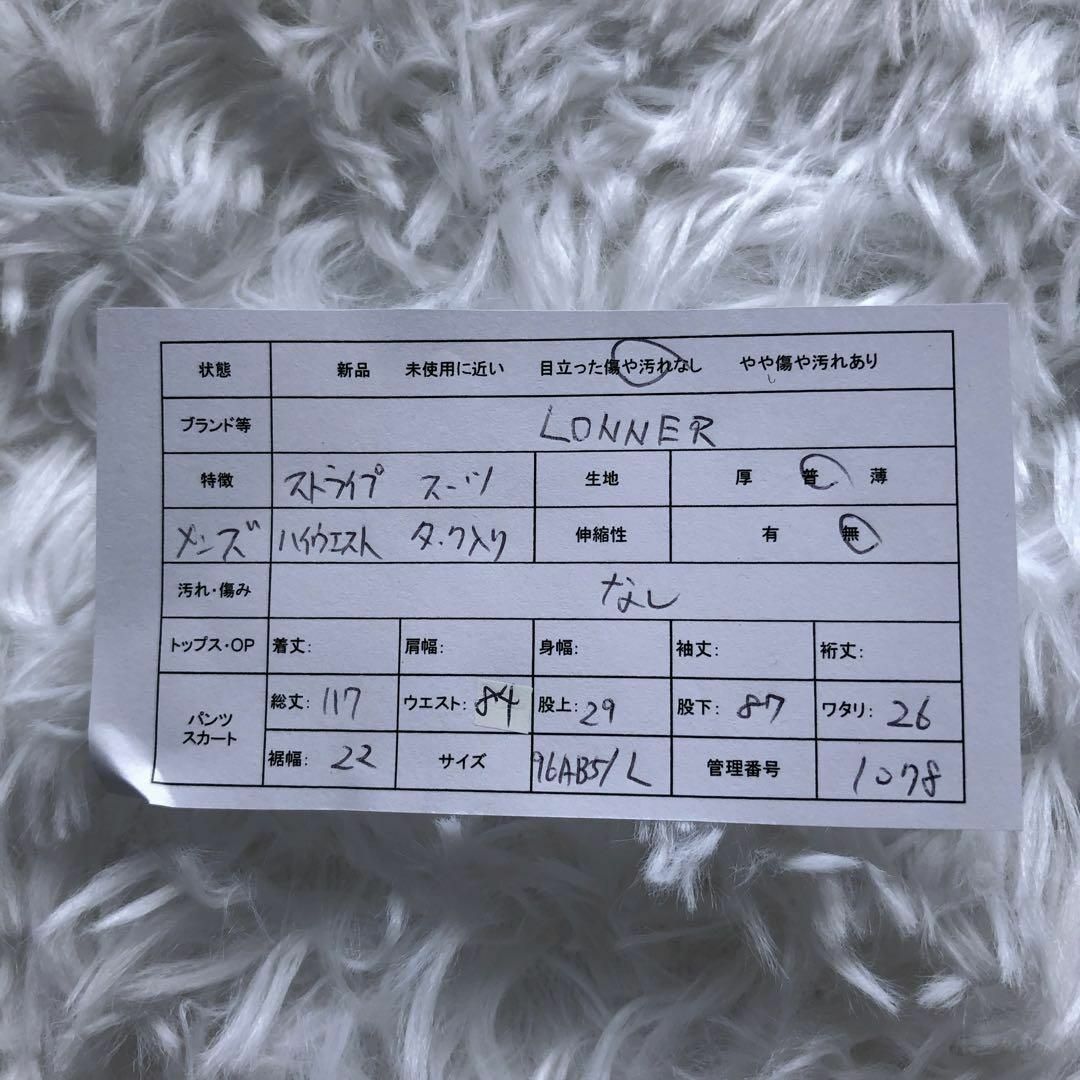 状態 新品 未使用に近い 目立った傷や汚れなし やや傷や汚れあり
ブランド等 LONNER
特徴 ストライプ スーツ 生地 厚 普 薄
メンズ ハイウエスト タック入り 伸縮性 有 無
汚れ・傷み なし
トップス・OP 着丈: 肩幅: 身幅: 袖丈: 裄丈:
パンツ スカート 総丈: 117 ウエスト: 84 股上: 29 股下: 87 ワタリ: 26
裾幅: 22 サイズ 96AB5/L 管理番号 1078